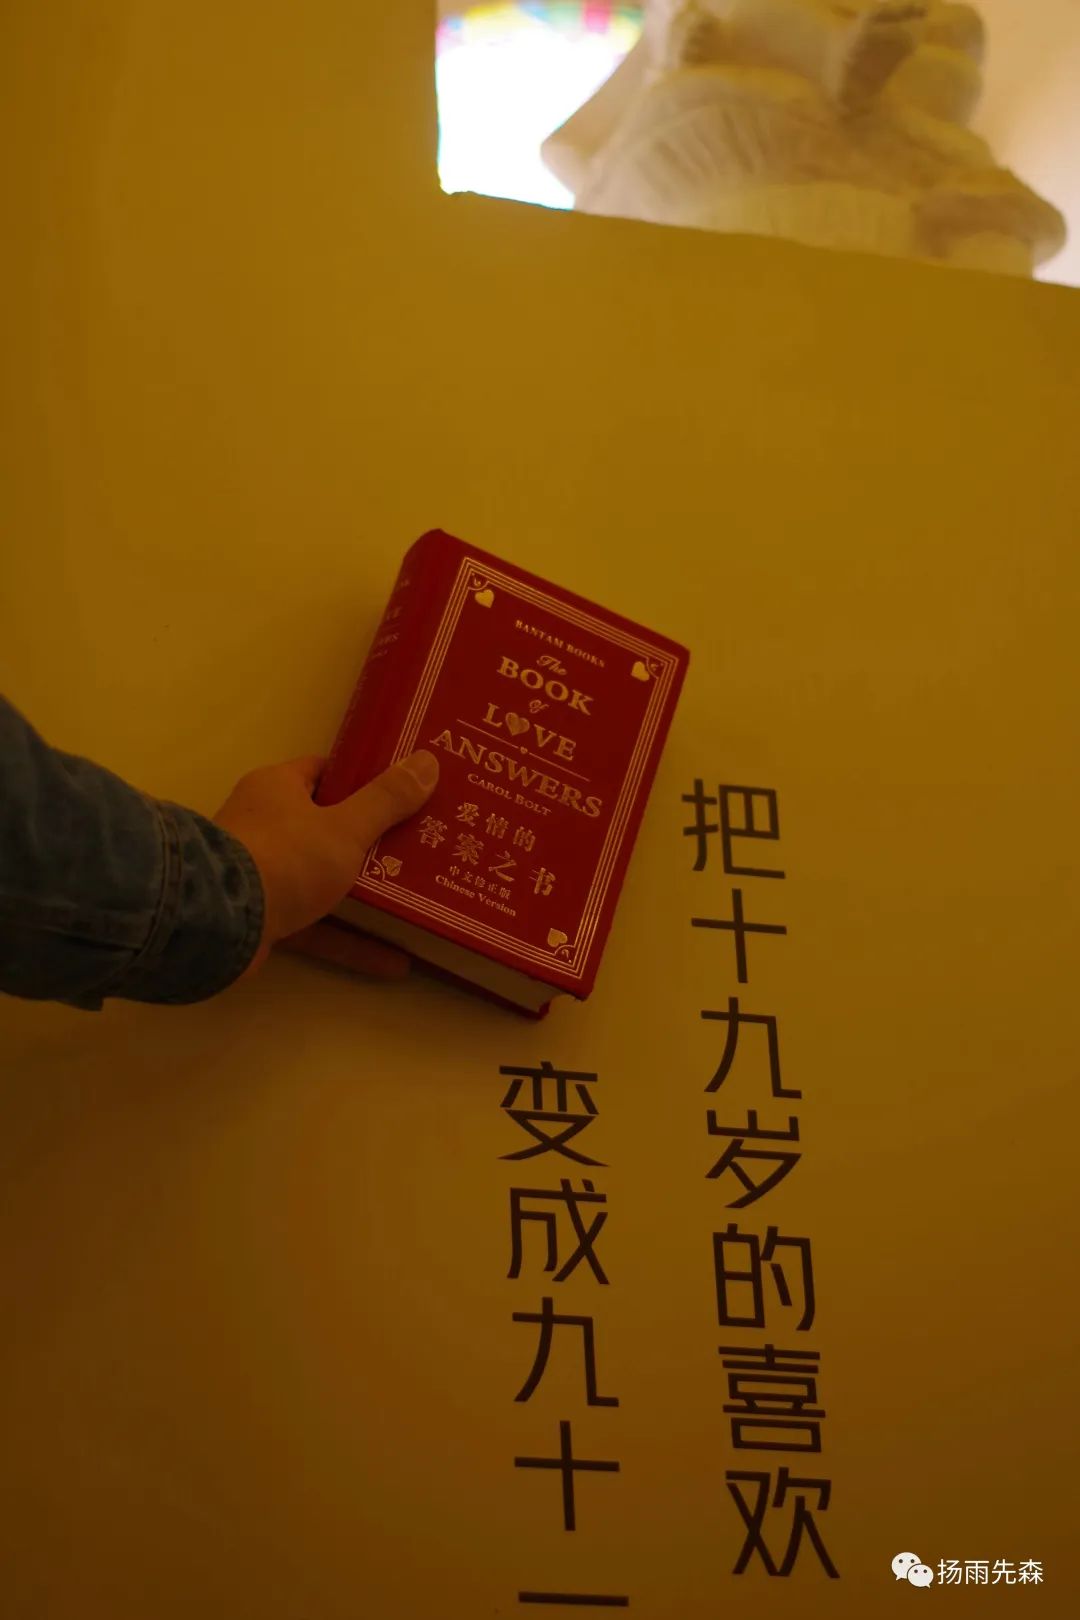 BANTAM BOOKS
The
BOOK
of
LOVE
ANSWERS
CAROL BOLT
爱情的
答案之书
中文修正版
Chinese Version
把十九岁的喜欢
变成九十一
扬雨先森